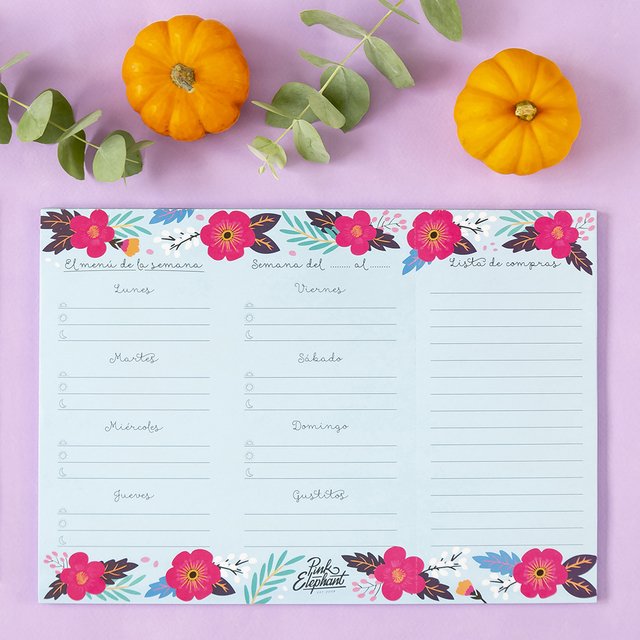 El menú de la semana
Semana del ........ al ........
Lista de compras
Lunes
Martes
Miércoles
Jueves
Viernes
Sábado
Domingo
Gustitos
Pink
Elephant